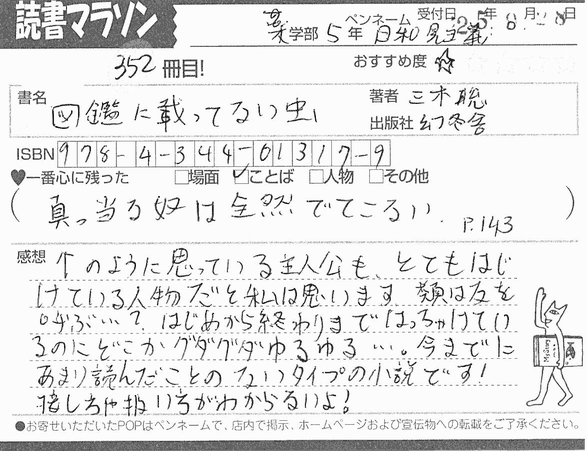 読書マラソン
薬学部 5年 ペンネーム 日和見主義 受付日 25年 8月 8日
352冊目! おすすめ度 ☆
書名 図鑑に載ってない虫 著者 三木聡
出版社 幻冬舎
ISBN 978-4-344-01317-9
♥一番心に残った □場面 ☑ことば □人物 □その他
(真っ当な奴は全然でてこない. P.143)
感想 ↑のように思っている主人公も、とてもはじ
けている人物だと私は思います 類は友を
呼ぶ…? はじめから終わりまではっちゃけてい
るのにどこかグダグダゆるゆる…。今までに
あまり読んだことのないタイプの小説です!
接しちゃ扱い方がわからないよ!
●お寄せいただいたPOPはペンネームで、店内で掲示、ホームページおよび宣伝物への転載をご了承ください。